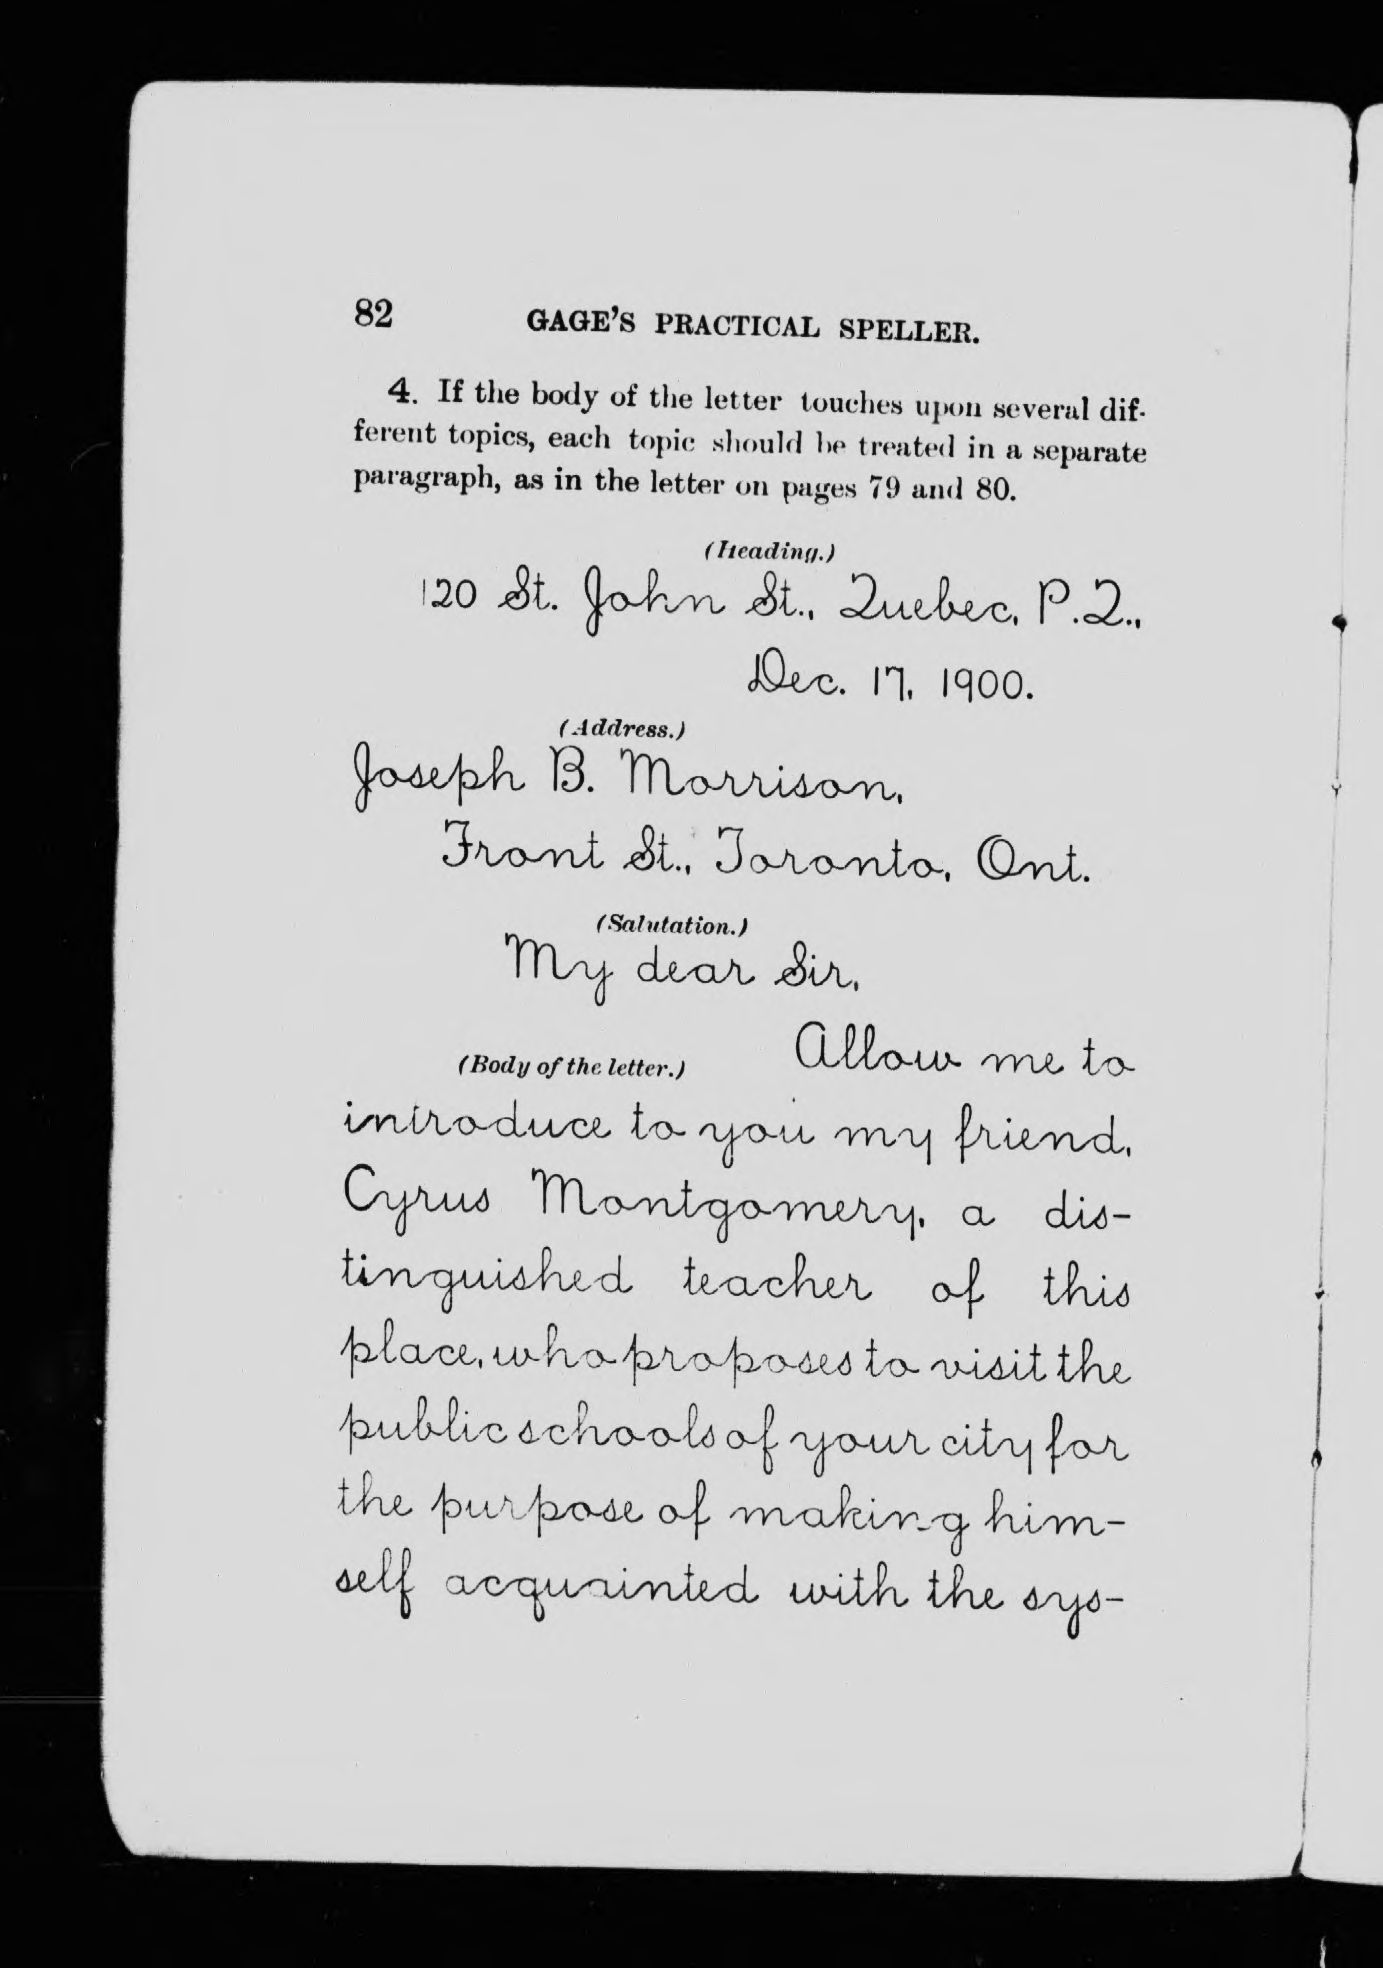 82 GAGE'S PRACTICAL SPELLER.
4. If the body of the letter touches upon several dif-
ferent topics, each topic should be treated in a separate
paragraph, as in the letter on pages 79 and 80.
(Heading.)
120 St. John St., Quebec, P.Q.,
Dec. 17, 1900.
(Address.)
Joseph B. Morrison,
Front St., Toronto, Ont.
(Salutation.)
My dear Sir,
(Body of the letter.) Allow me to
introduce to you my friend,
Cyrus Montgomery, a dis-
tinguished teacher of this
place, who proposes to visit the
public schools of your city for
the purpose of making him-
self acquainted with the sys-